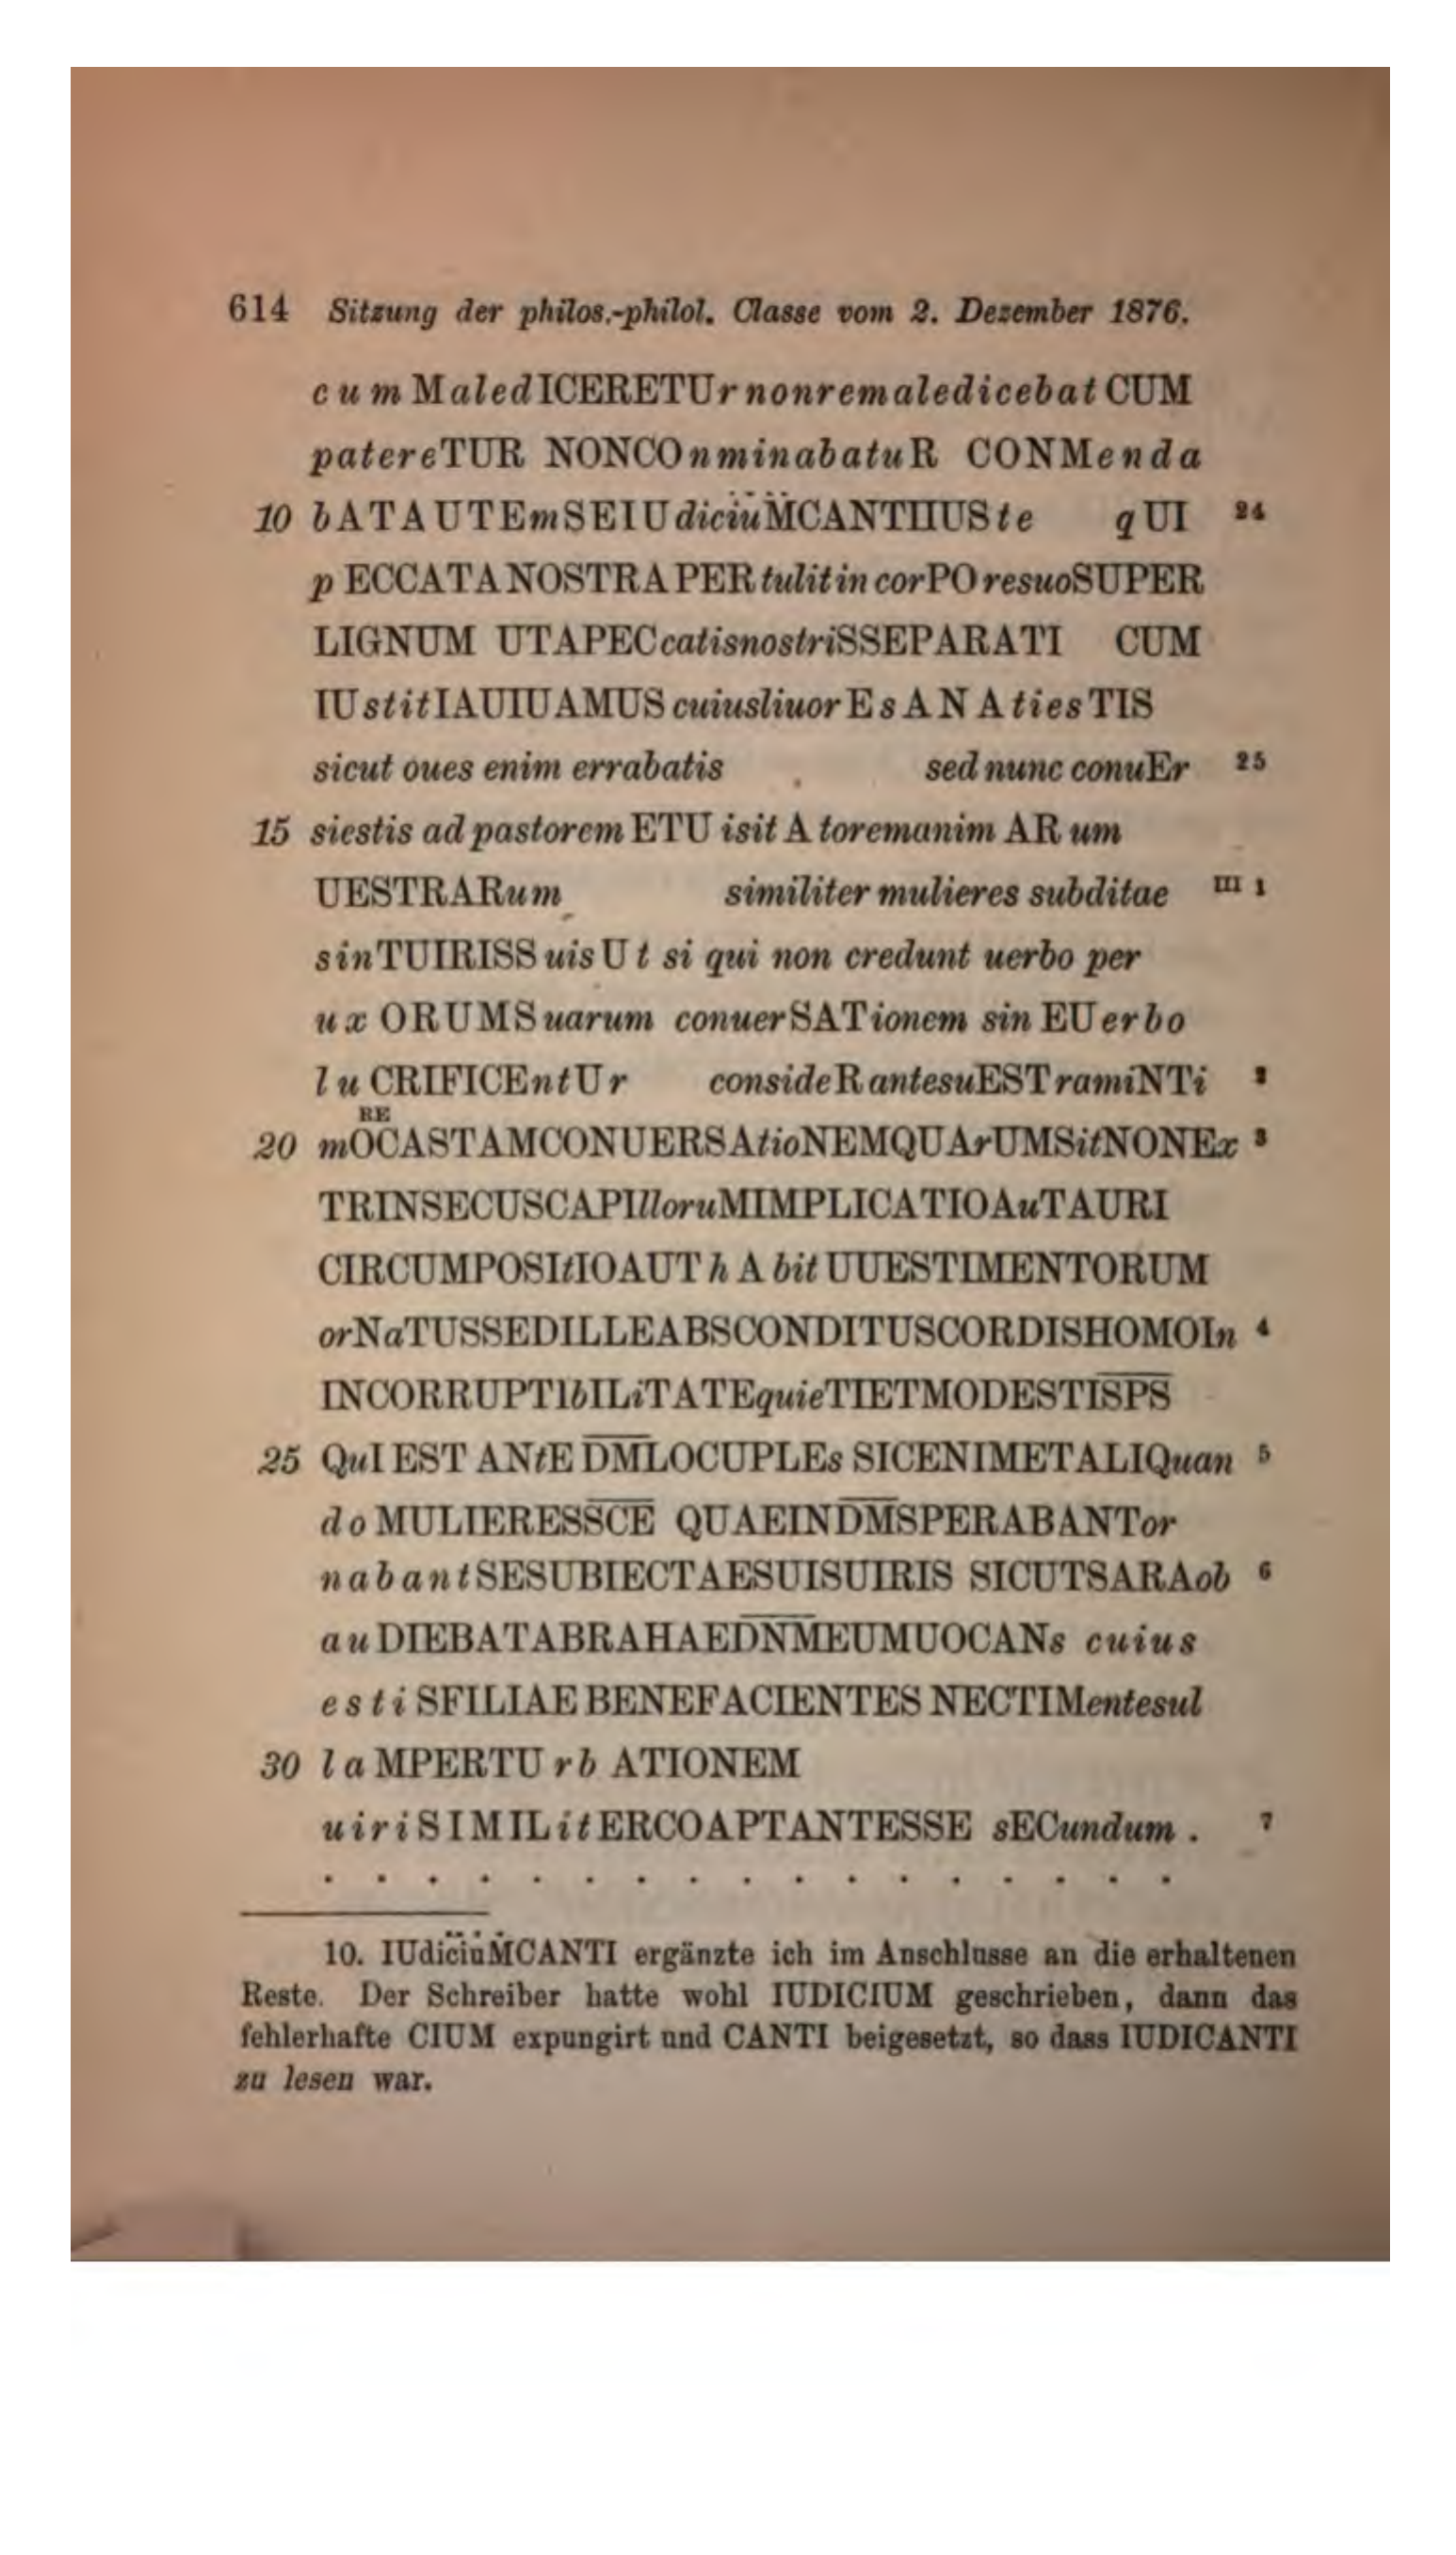 614 Sitzung der philos.-philol. Classe vom 2. Dezember 1876.
cum MaledICERETUr nonremaledicebat CUM
patereTUR NONCOnminabatuR CONMenda
10 bATAUTEmSEIUdic̈i̇üM̈CANTIIUSte qUI 24
pECCATANOSTRAPERtulitincorPOresuoSUPER
LIGNUM UTAPECcatisnostriSSEPARATI CUM
IUstitIAUIUAMUS cuiusliuorEsANAtiesTIS
sicut oues enim errabatis sed nunc conuEr 25
15 siestis ad pastorem ETUisitAtoremanimARum
UESTRARum similiter mulieres subditae III 1
sinTUIRISSuisUt si qui non credunt uerbo per
uxORUMSuarum conuerSATionem sinEUerbo
luCRIFICEntUr consideRantesuESTramiNTi 2
RE
20 mOCASTAMCONUERSAtioNEMQUArUMSitNONEx 3
TRINSECUSCAPIlloruMIMPLICATIOAuTAURI
CIRCUMPOSItIOAUThAbitUUESTIMENTORUM
orNaTUSSEDILLEABSCONDITUSCORDISHOMOIn 4
INCORRUPTIbILiTATEquieTIETMODESTIS̅P̅S̅
25 QuIEST ANtE D̅M̅LOCUPLEs SICENIMETALIQuan 5
doMULIERESS̅C̅E̅ QUAEIND̅M̅SPERABANTor
nabantSESUBIECTAESUISUIRIS SICUTSARAob 6
auDIEBATABRAHAED̅N̅M̅EUMUOCANs cuius
estiSFILIAEBENEFACIENTES NECTIMentesul
30 laMPERTUrbATIONEM
uiriSIMILitERCOAPTANTESSE sECundum . 7
. . . . . . . . . . . . . . . . .
10. IUdic̈i̇üṀCANTI ergänzte ich im Anschlusse an die erhaltenen
Reste. Der Schreiber hatte wohl IUDICIUM geschrieben, dann das
fehlerhafte CIUM expungirt und CANTI beigesetzt, so dass IUDICANTI
zu lesen war.